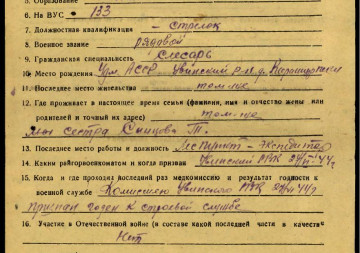 5. Образование
6. На ВУС - 133
7. Должностная квалификация - стрелок
8. Военное звание рядовой
9. Гражданская специальность Слесарь
10. Место рождения Удм. АССР Увинский р-н, д.
11. Последнее место жительства там-же
12. Где проживает в настоящее время семья (фамилия, имя и отчество жены или
родителей и точный их адрес) там-же
сестра Т.
13. Последнее место работы и должность - Экспедитор
14. Каким райгорвоенкоматом и когда призван Увинский РВК 44 г
15. Когда и где проходил последний раз медкомиссию и результат годности к
военной службе Комиссией Увинского РВК 44 г
признан годен к строевой службе
16. Участие в Отечественной войне (в составе какой последней части в качестве
Нет